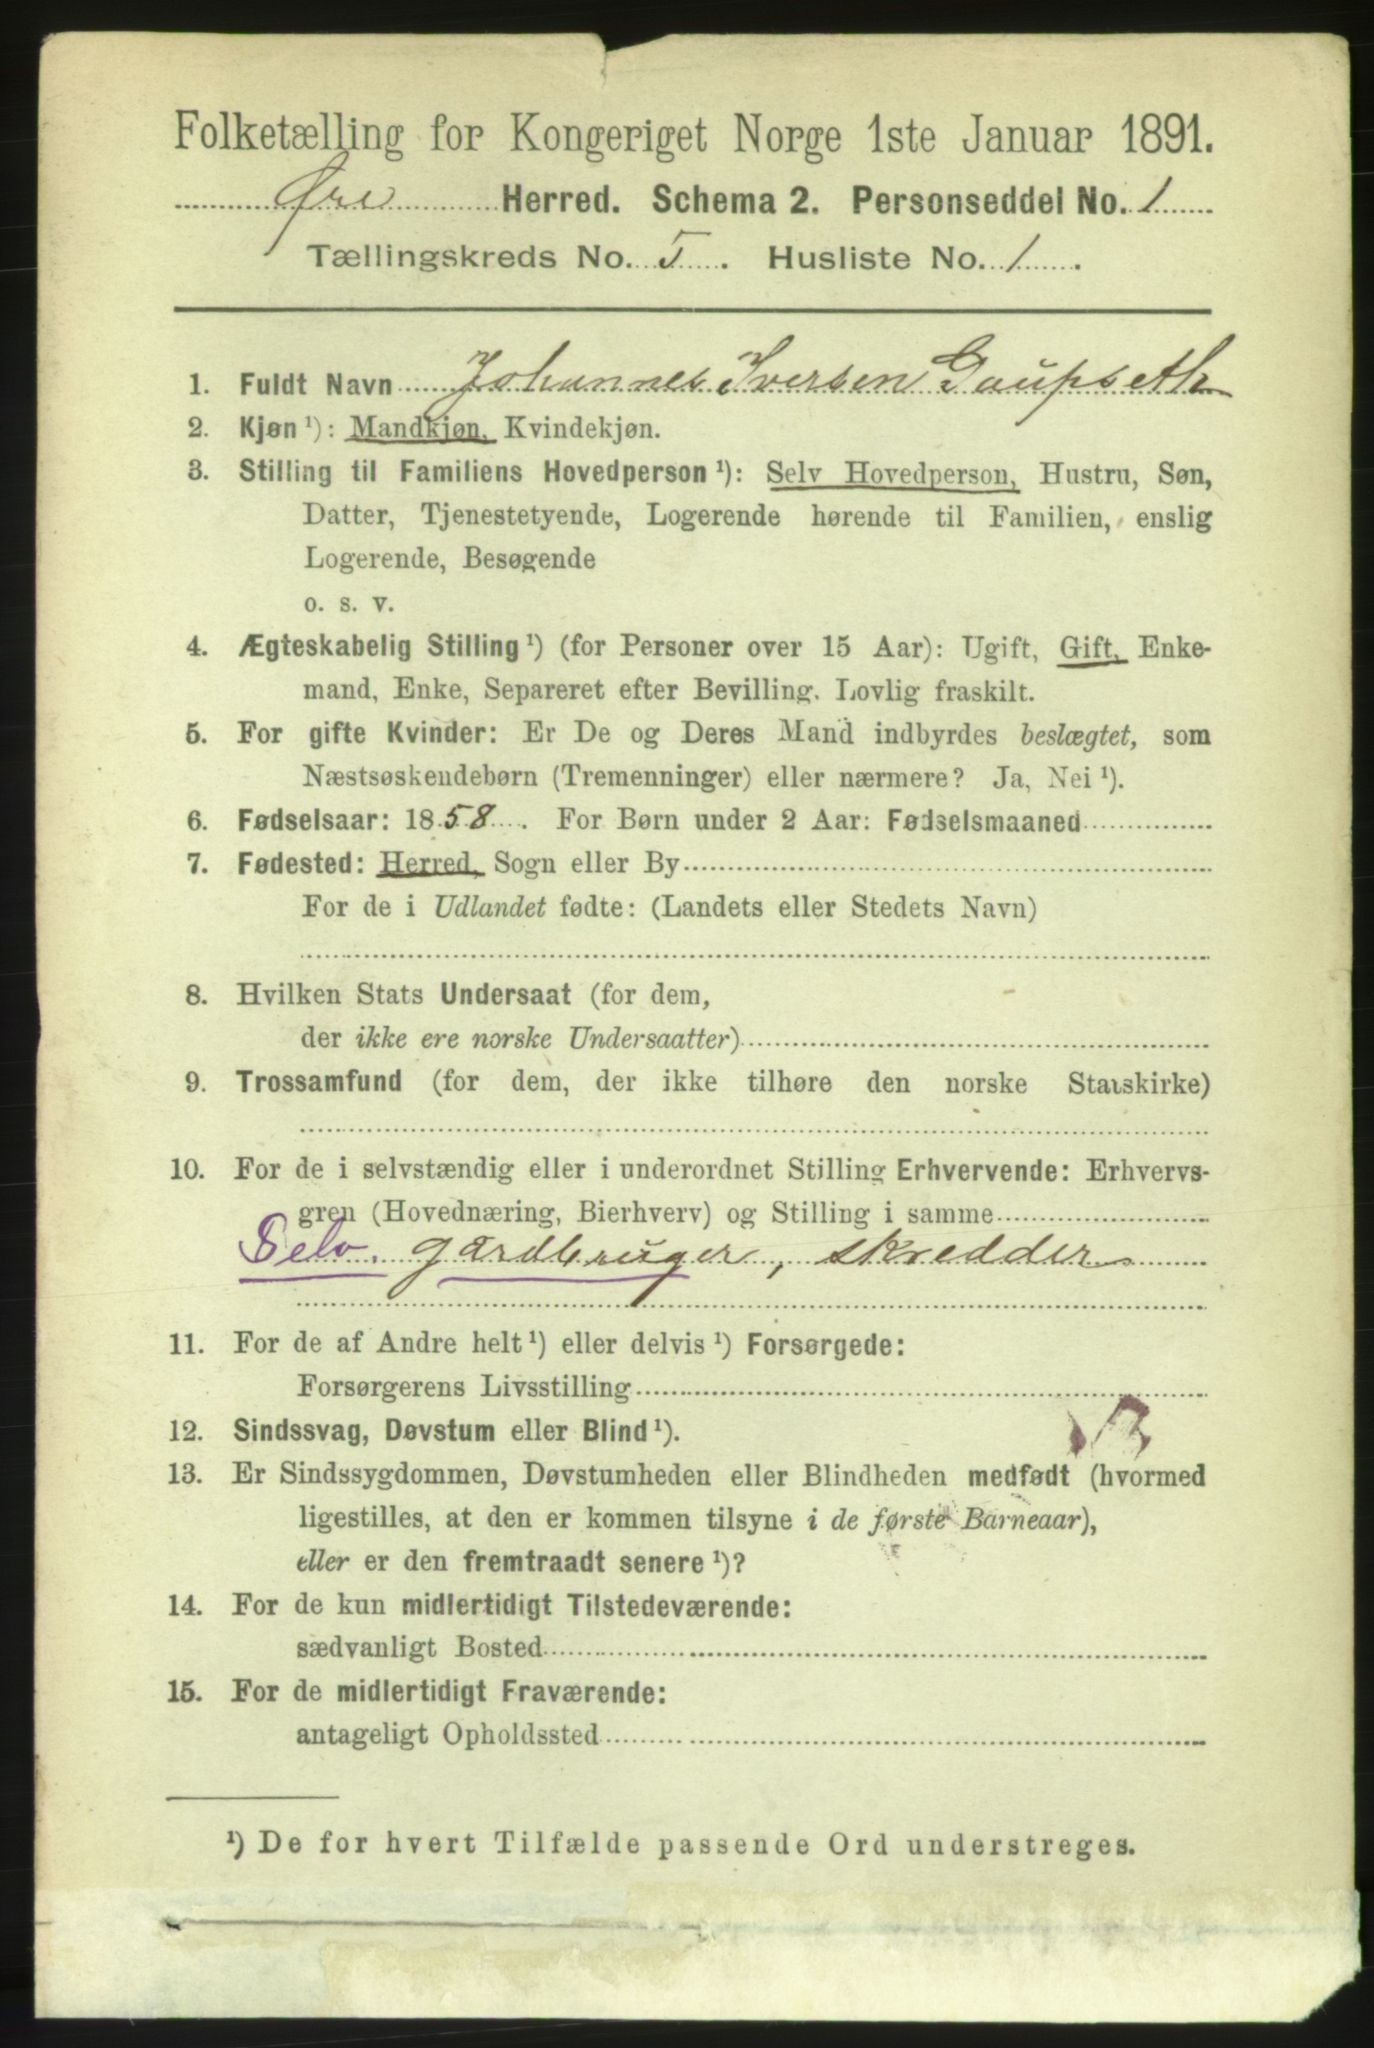 Folketælling for Kongeriget Norge 1ste Januar 1891.
Øre Herred. Schema 2. Personseddel No. 1
Tællingskreds No. 5. Husliste No. 1.
1. Fuldt Navn Johannes Iversen Gaupseth
2. Kjøn ¹): Mandkjøn, Kvindekjøn.
3. Stilling til Familiens Hovedperson ¹): Selv Hovedperson, Hustru, Søn,
Datter, Tjenestetyende, Logerende hørende til Familien, enslig
Logerende, Besøgende
o. s. v.
4. Ægteskabelig Stilling ¹) (for Personer over 15 Aar): Ugift, Gift, Enke-
mand, Enke, Separeret efter Bevilling. Lovlig fraskilt.
5. For gifte Kvinder: Er De og Deres Mand indbyrdes beslægtet, som
Næstsøskendebørn (Tremenninger) eller nærmere? Ja, Nei ¹).
6. Fødselsaar: 1858. For Børn under 2 Aar: Fødselsmaaned
7. Fødested: Herred, Sogn eller By
For de i Udlandet fødte: (Landets eller Stedets Navn)
8. Hvilken Stats Undersaat (for dem,
der ikke ere norske Undersaatter)
9. Trossamfund (for dem, der ikke tilhøre den norske Statskirke)
10. For de i selvstændig eller i underordnet Stilling Erhvervende: Erhvervs-
gren (Hovednæring, Bierhverv) og Stilling i samme
Selv. gardbruger, skredder
11. For de af Andre helt ¹) eller delvis ¹) Forsørgede:
Forsørgerens Livsstilling
12. Sindssvag, Døvstum eller Blind ¹).
13. Er Sindssygdommen, Døvstumheden eller Blindheden medfødt (hvormed
ligestilles, at den er kommen tilsyne i de første Barneaar),
eller er den fremtraadt senere ¹)?
14. For de kun midlertidigt Tilstedeværende:
sædvanligt Bosted
15. For de midlertidigt Fraværende:
antageligt Opholdssted
¹) De for hvert Tilfælde passende Ord understreges.